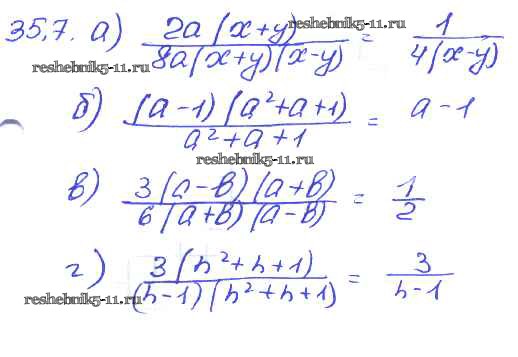 35,7. а) 2a(x+y) / 8a(x+y)(x-y) = 1 / 4(x-y)
reshebnik5-11.ru
reshebnik5-11.ru
б) (a-1)(a²+a+1) / a²+a+1 = a-1
reshebnik5-11.ru
в) 3(a-b)(a+b) / 6(a+b)(a-b) = 1/2
г) 3(n²+n+1) / (n-1)(n²+n+1) = 3 / n-1
reshebnik5-11.ru